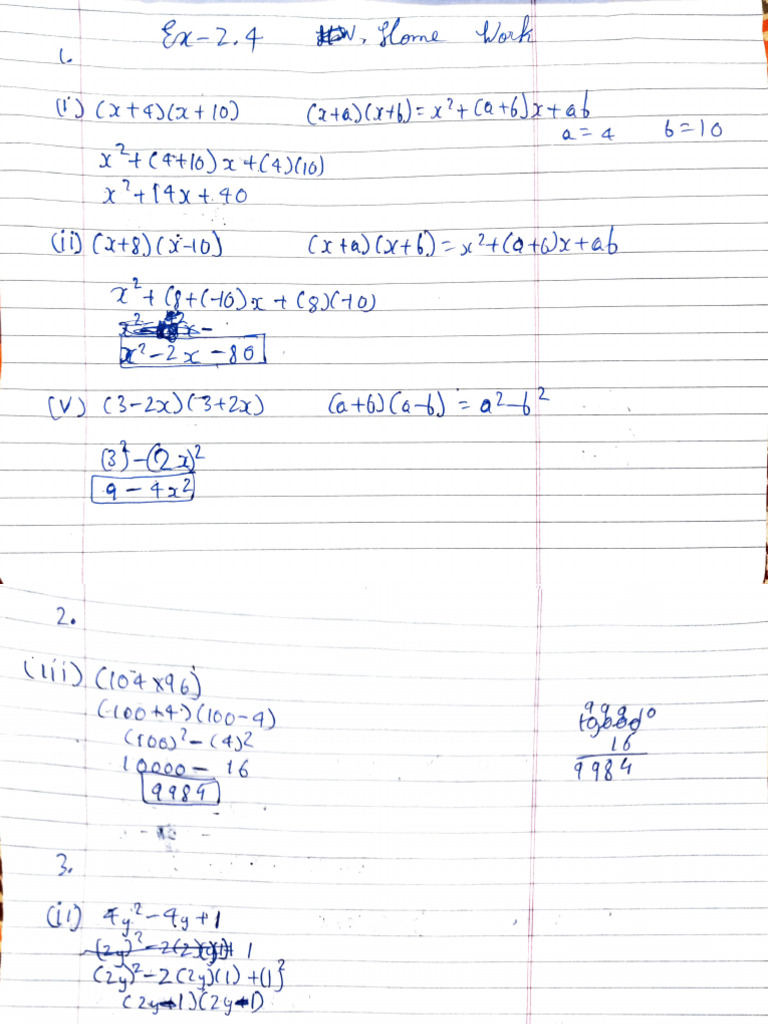 Ex-2.4 HW, Home Work
1.
(i) (x+4)(x+10) (x+a)(x+b)=x²+(a+b)x+ab
a=4 b=10
x²+(4+10)x+(4)(10)
x²+14x+40
(ii) (x+8)(x-10) (x+a)(x+b)=x²+(a+b)x+ab
x²+(8+(-10)x+(8)(-10)
x²-2x-80
(V) (3-2x)(3+2x) (a+b)(a-b)=a²-b²
(3)²-(2x)²
9-4x²
2.
(iii) (104×96)
(100+4)(100-4)
(100)²-(4)²
10000-16
9984
9 9 9 10
10000
16
9984
3.
(ii) 4y²-4y+1
(2y)²-2(2y)(1)+(1)²
(2y-1)(2y-1)